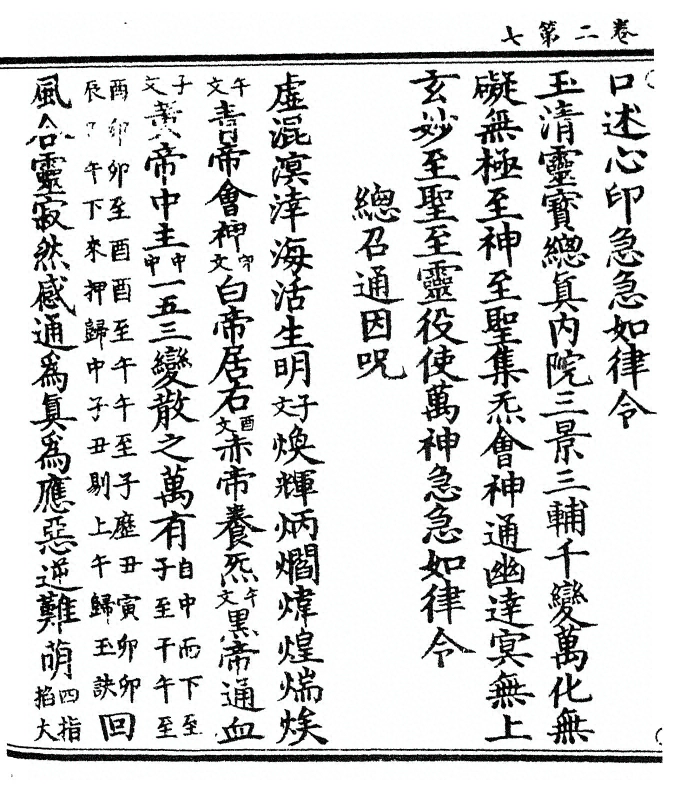 卷二第七
口述心印急急如律令
玉清靈寶總真內院三景三輔千變萬化無
礙無極至神至聖集炁會神通幽達冥無上
玄妙至聖至靈役使萬神急急如律令
總召通因咒
虛混溟涬海活生明子文煥輝炳爓煒煌煓㷟
午文青帝會神卯文白帝居右酉文赤帝養炁午文黑帝通血
子文黃帝中主中中一五三變散之萬有自中而下至子至干午至
酉卯卯至酉酉至午午至子歷丑寅卯卯辰午下來押歸中子丑剔上午歸玉訣回
風合靈寂然感通為真為應惡逆難萌四指掐大